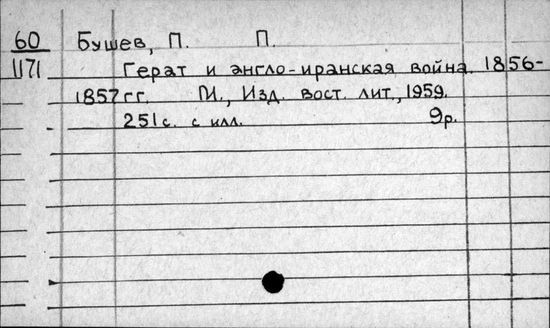 60 Бушев, П. П.
1171 Герат и англо-иранская война. 1856-
1857гг. М., Изд. вост. лит., 1959.
251с. с илл. 9р.